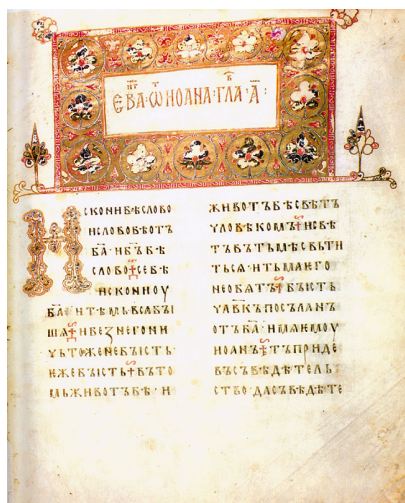 ЕВА·ѾИОАНА·ГЛА·А҃·
ИСКОНИБѢСЛОВО
ИСЛОВОБѢОТЪ
БА҃·ИБ҃ЪБѢ
СЛОВО⁘СЕБѢ
ИСКОНИОУ
БА҃ИТѢМЬВСѦБЫ
ШѦ⁘ИБЕЗНЕГОНИ
ЧЬТОЖЕНЕБЫСТЬ·
ЕЖЕБЫСТЬ⁘ВЪТО
МЬЖИВОТЪБѢ·И
ЖИВОТЪБѢСВѢТЪ
ЧЛОВѢКОМЪ⁘ИСВѢ
ТЪВЪТЬМѢСВЬТИ
ТЬСѦ·ИТЬМАѤГО
НЕОБѦТЪ⁘БЫСТЬ
ЧЛ҃ВКЪПОСЪЛАНЪ
ОТЪБА҃·ИМѦѤМОУ
ИОАНЪ⁘ТЪПРИДЕ
ВЪСЪВѢДѢТЕЛЬ
СТВО·ДАСЪВѢДѢТЕ